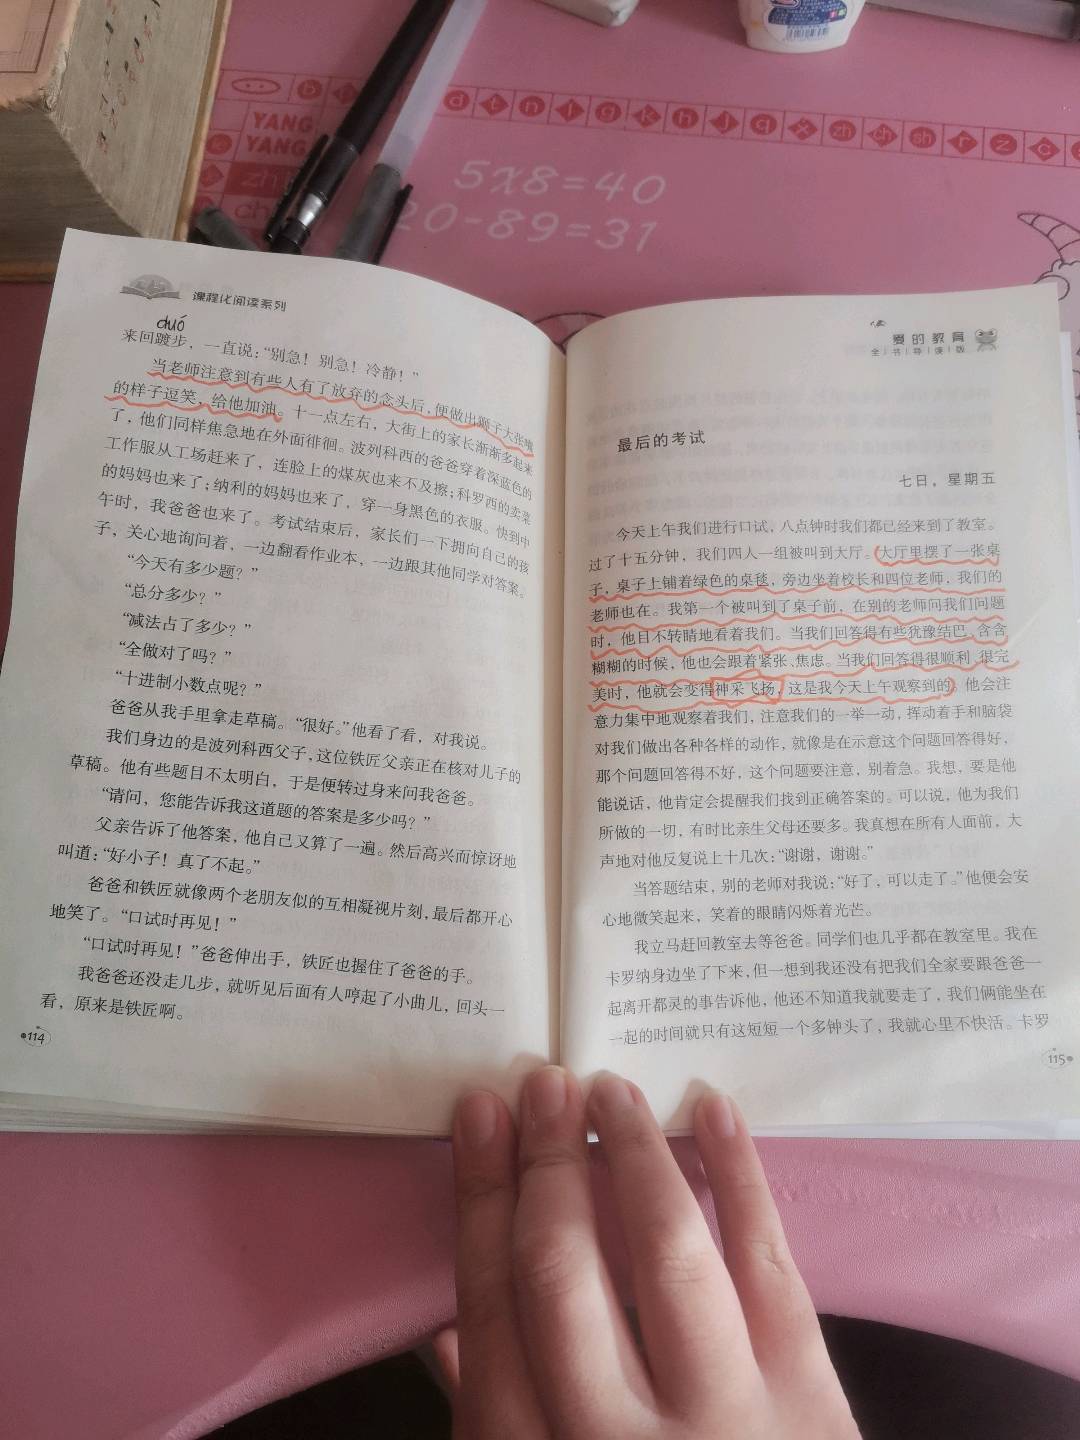 YANG
YANG
d t n l g k h j q x zh ch sh r z c
5x8=40
20-89=31
课程化阅读系列
duó
来回踱步，一直说：“别急！别急！冷静！”
当老师注意到有些人有了放弃的念头后，便做出狮子大张嘴
的样子逗笑，给他加油。十一点左右，大街上的家长渐渐多起来
了，他们同样焦急地在外面徘徊。波列科西的爸爸穿着深蓝色的
工作服从工场赶来了，连脸上的煤灰也来不及擦；科罗西的卖菜
的妈妈也来了；纳利的妈妈也来了，穿一身黑色的衣服。快到中
午时，我爸爸也来了。考试结束后，家长们一下拥向自己的孩
子，关心地询问着，一边翻看作业本，一边跟其他同学对答案。
“今天有多少题？”
“总分多少？”
“减法占了多少？”
“全做对了吗？”
“十进制小数点呢？”
爸爸从我手里拿走草稿。“很好。”他看了看，对我说。
我们身边的是波列科西父子，这位铁匠父亲正在核对儿子的
草稿。他有些题目不太明白，于是便转过身来问我爸爸。
“请问，您能告诉我这道题的答案是多少吗？”
父亲告诉了他答案，他自己又算了一遍。然后高兴而惊讶地
叫道：“好小子！真了不起。”
爸爸和铁匠就像两个老朋友似的互相凝视片刻，最后都开心
地笑了。“口试时再见！”
“口试时再见！”爸爸伸出手，铁匠也握住了爸爸的手。
我爸爸还没走几步，就听见后面有人哼起了小曲儿，回头一
看，原来是铁匠啊。
114
爱的教育
全书导读版
最后的考试
七日，星期五
今天上午我们进行口试，八点钟时我们都已经来到了教室。
过了十五分钟，我们四人一组被叫到大厅。大厅里摆了一张桌
子，桌子上铺着绿色的桌毯，旁边坐着校长和四位老师，我们的
老师也在。我第一个被叫到了桌子前，在别的老师问我们问题
时，他目不转睛地看着我们。当我们回答得有些犹豫结巴、含含
糊糊的时候，他也会跟着紧张、焦虑。当我们回答得很顺利、很完
美时，他就会变得神采飞扬，这是我今天上午观察到的。他会注
意力集中地观察着我们，注意我们的一举一动，挥动着手和脑袋
对我们做出各种各样的动作，就像是在示意这个问题回答得好，
那个问题回答得不好，这个问题要注意，别着急。我想，要是他
能说话，他肯定会提醒我们找到正确答案的。可以说，他为我们
所做的一切，有时比亲生父母还要多。我真想在所有人面前，大
声地对他反复说上十几次：“谢谢，谢谢。”
当答题结束，别的老师对我说：“好了，可以走了。”他便会安
心地微笑起来，笑着的眼睛闪烁着光芒。
我立马赶回教室去等爸爸。同学们也几乎都在教室里。我在
卡罗纳身边坐了下来，但一想到我还没有把我们全家要跟爸爸一
起离开都灵的事告诉他，他还不知道我就要走了，我们俩能坐在
一起的时间就只有这短短一个多钟头了，我就心里不快活。卡罗
115